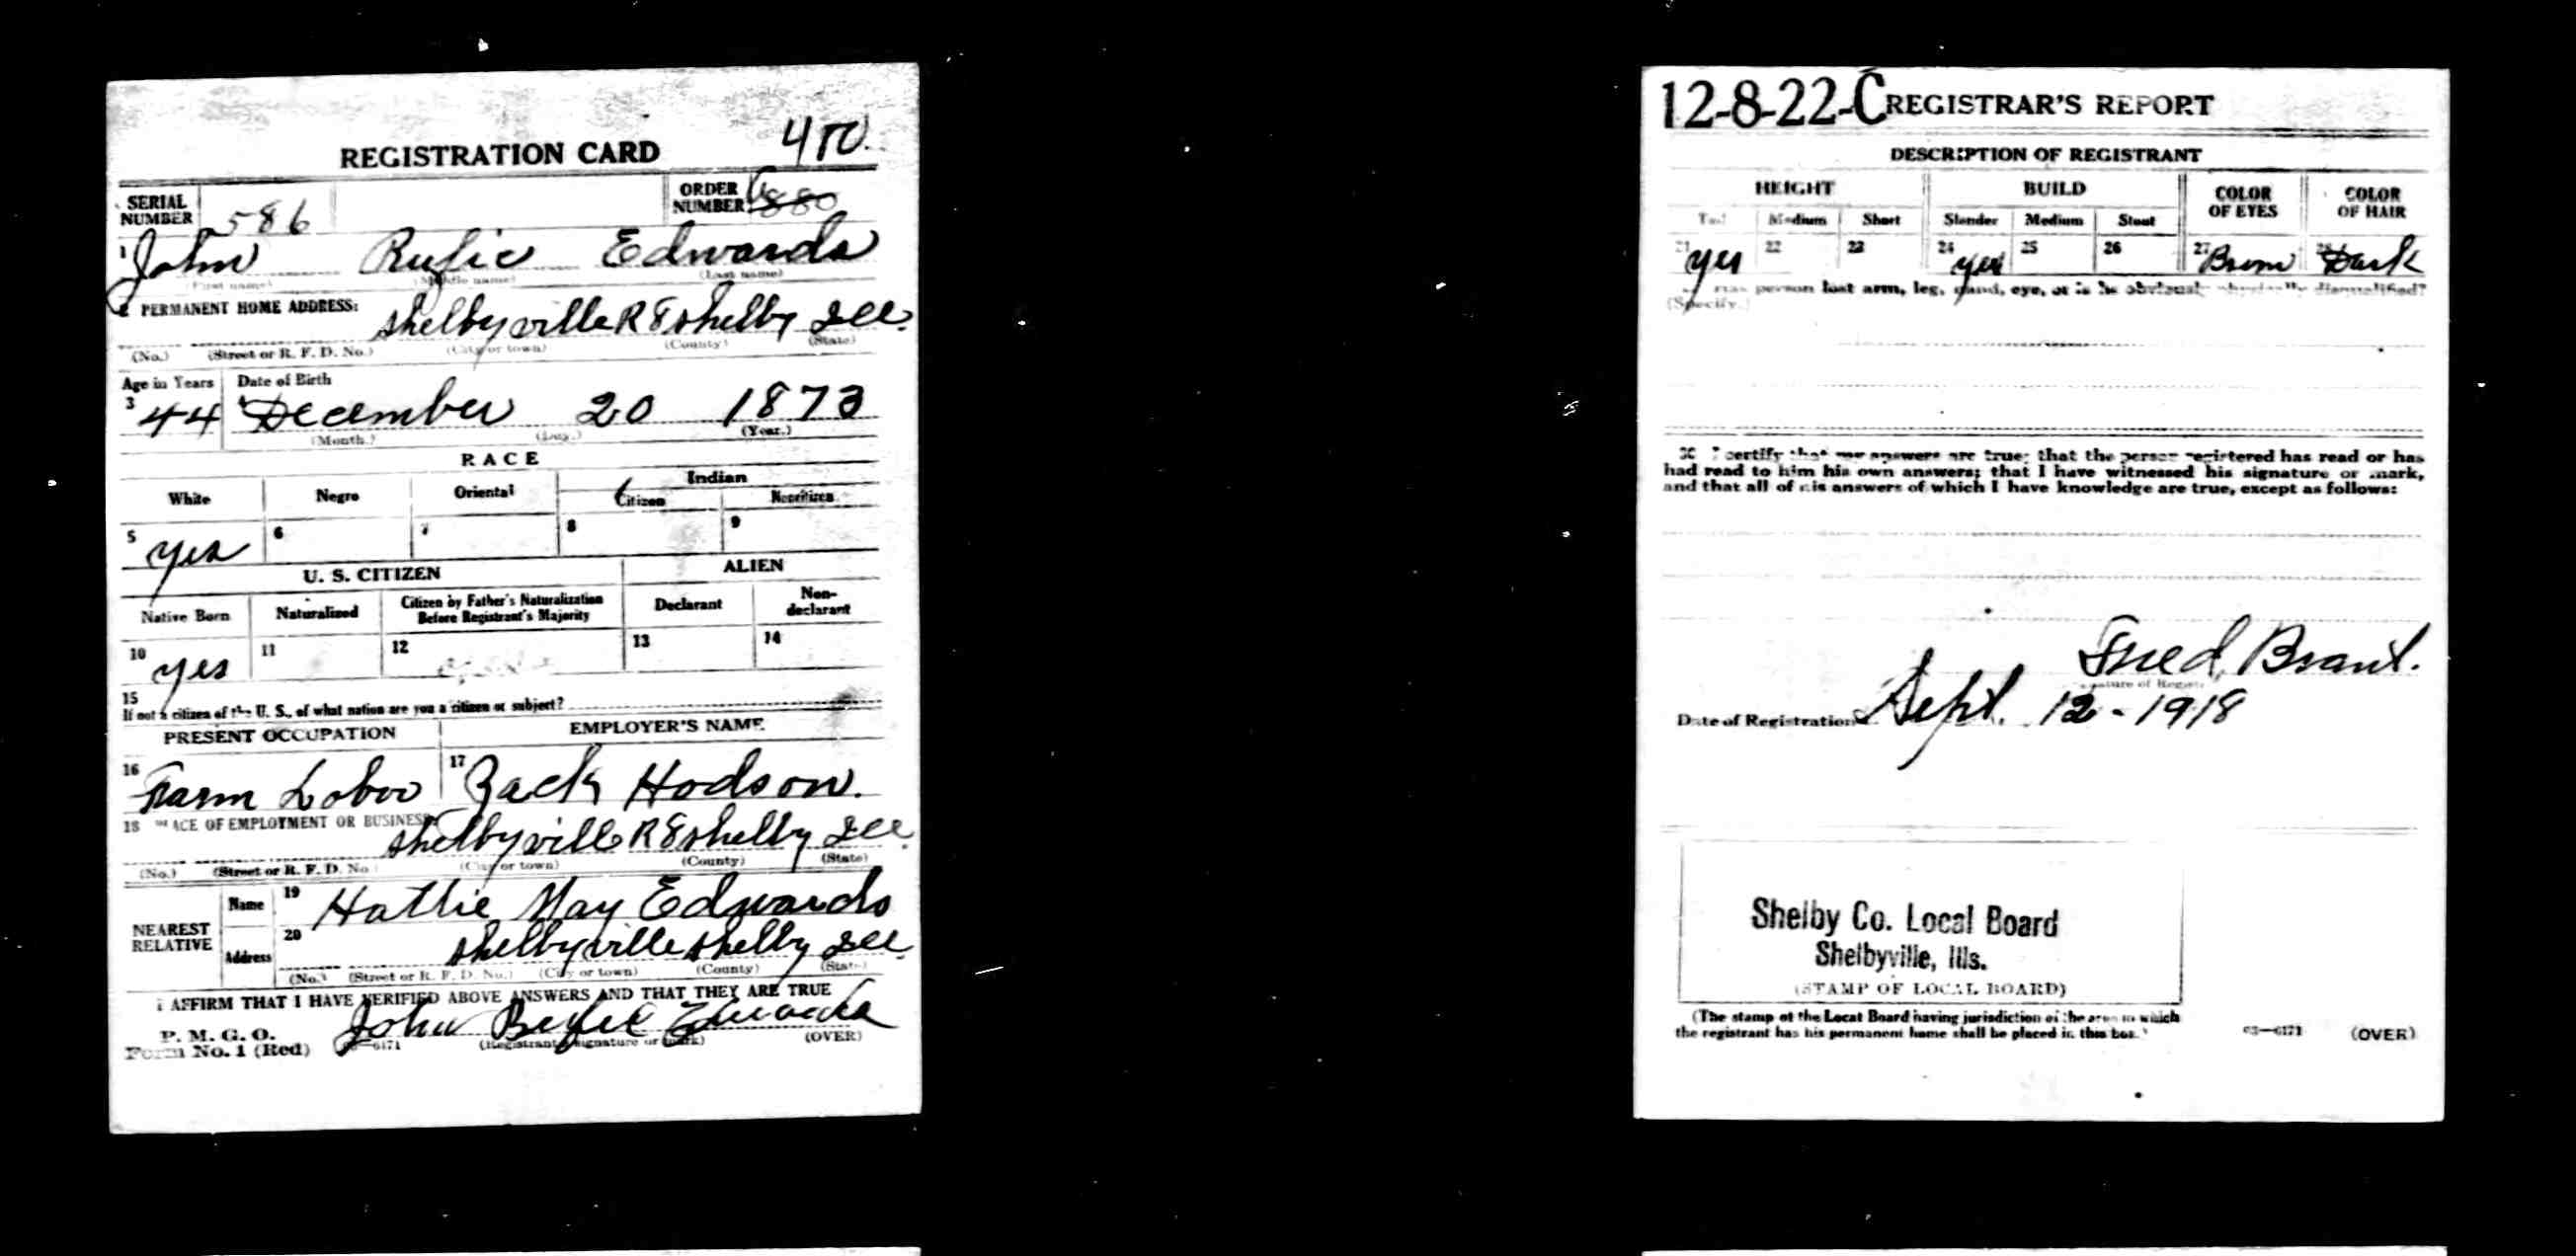 REGISTRATION CARD
SERIAL NUMBER 586
ORDER NUMBER 880
1 John Rufie Edwards
(First name) (Middle name) (Last name)
2 PERMANENT HOME ADDRESS:
Shelbyville R 8 Shelby Ill.
(No.) (Street or R. F. D. No.) (City or town) (County) (State)
Age in Years Date of Birth
3 44 4 December 20 1873
(Month.) (Day.) (Year.)
RACE
White Negro Oriental Indian
Citizen Noncitizen
5 yes 6 7 8 9
U. S. CITIZEN ALIEN
Native Born Naturalized Citizen by Father's Naturalization Before Registrant's Majority Declarant Non-declarant
10 yes 11 12 13 14
15
If not a citizen of the U. S., of what nation are you a citizen or subject?
PRESENT OCCUPATION EMPLOYER'S NAME
16 Farm Labor 17 Zack Hodson.
18 PLACE OF EMPLOYMENT OR BUSINESS:
Shelbyville R 8 Shelby Ill.
(No.) (Street or R. F. D. No.) (City or town) (County) (State)
NEAREST RELATIVE
Name 19 Hattie May Edwards
Address 20 Shelbyville Shelby Ill.
(No.) (Street or R. F. D. No.) (City or town) (County) (State)
I AFFIRM THAT I HAVE VERIFIED ABOVE ANSWERS AND THAT THEY ARE TRUE
P. M. G. O.
Form No. 1 (Red) 03—6171 John Rufie Edwards
(Registrant's signature or mark) (OVER)
12-8-22-C REGISTRAR'S REPORT
DESCRIPTION OF REGISTRANT
HEIGHT BUILD COLOR OF EYES COLOR OF HAIR
Tall Medium Short Slender Medium Stout
21 yes 22 23 24 yes 25 26 27 Brown 28 Dark
Has person lost arm, leg, hand, eye, or is he obviously physically disqualified?
(Specify.)
30 I certify that my answers are true; that the person registered has read or has
had read to him his own answers; that I have witnessed his signature or mark,
and that all of his answers of which I have knowledge are true, except as follows:
Fred Brant.
(Signature of Registrar)
Date of Registration Sept. 12-1918
Shelby Co. Local Board
Shelbyville, Ills.
(STAMP OF LOCAL BOARD)
(The stamp of the Local Board having jurisdiction of the area in which
the registrant has his permanent home shall be placed in this box.)
03—6171 (OVER)